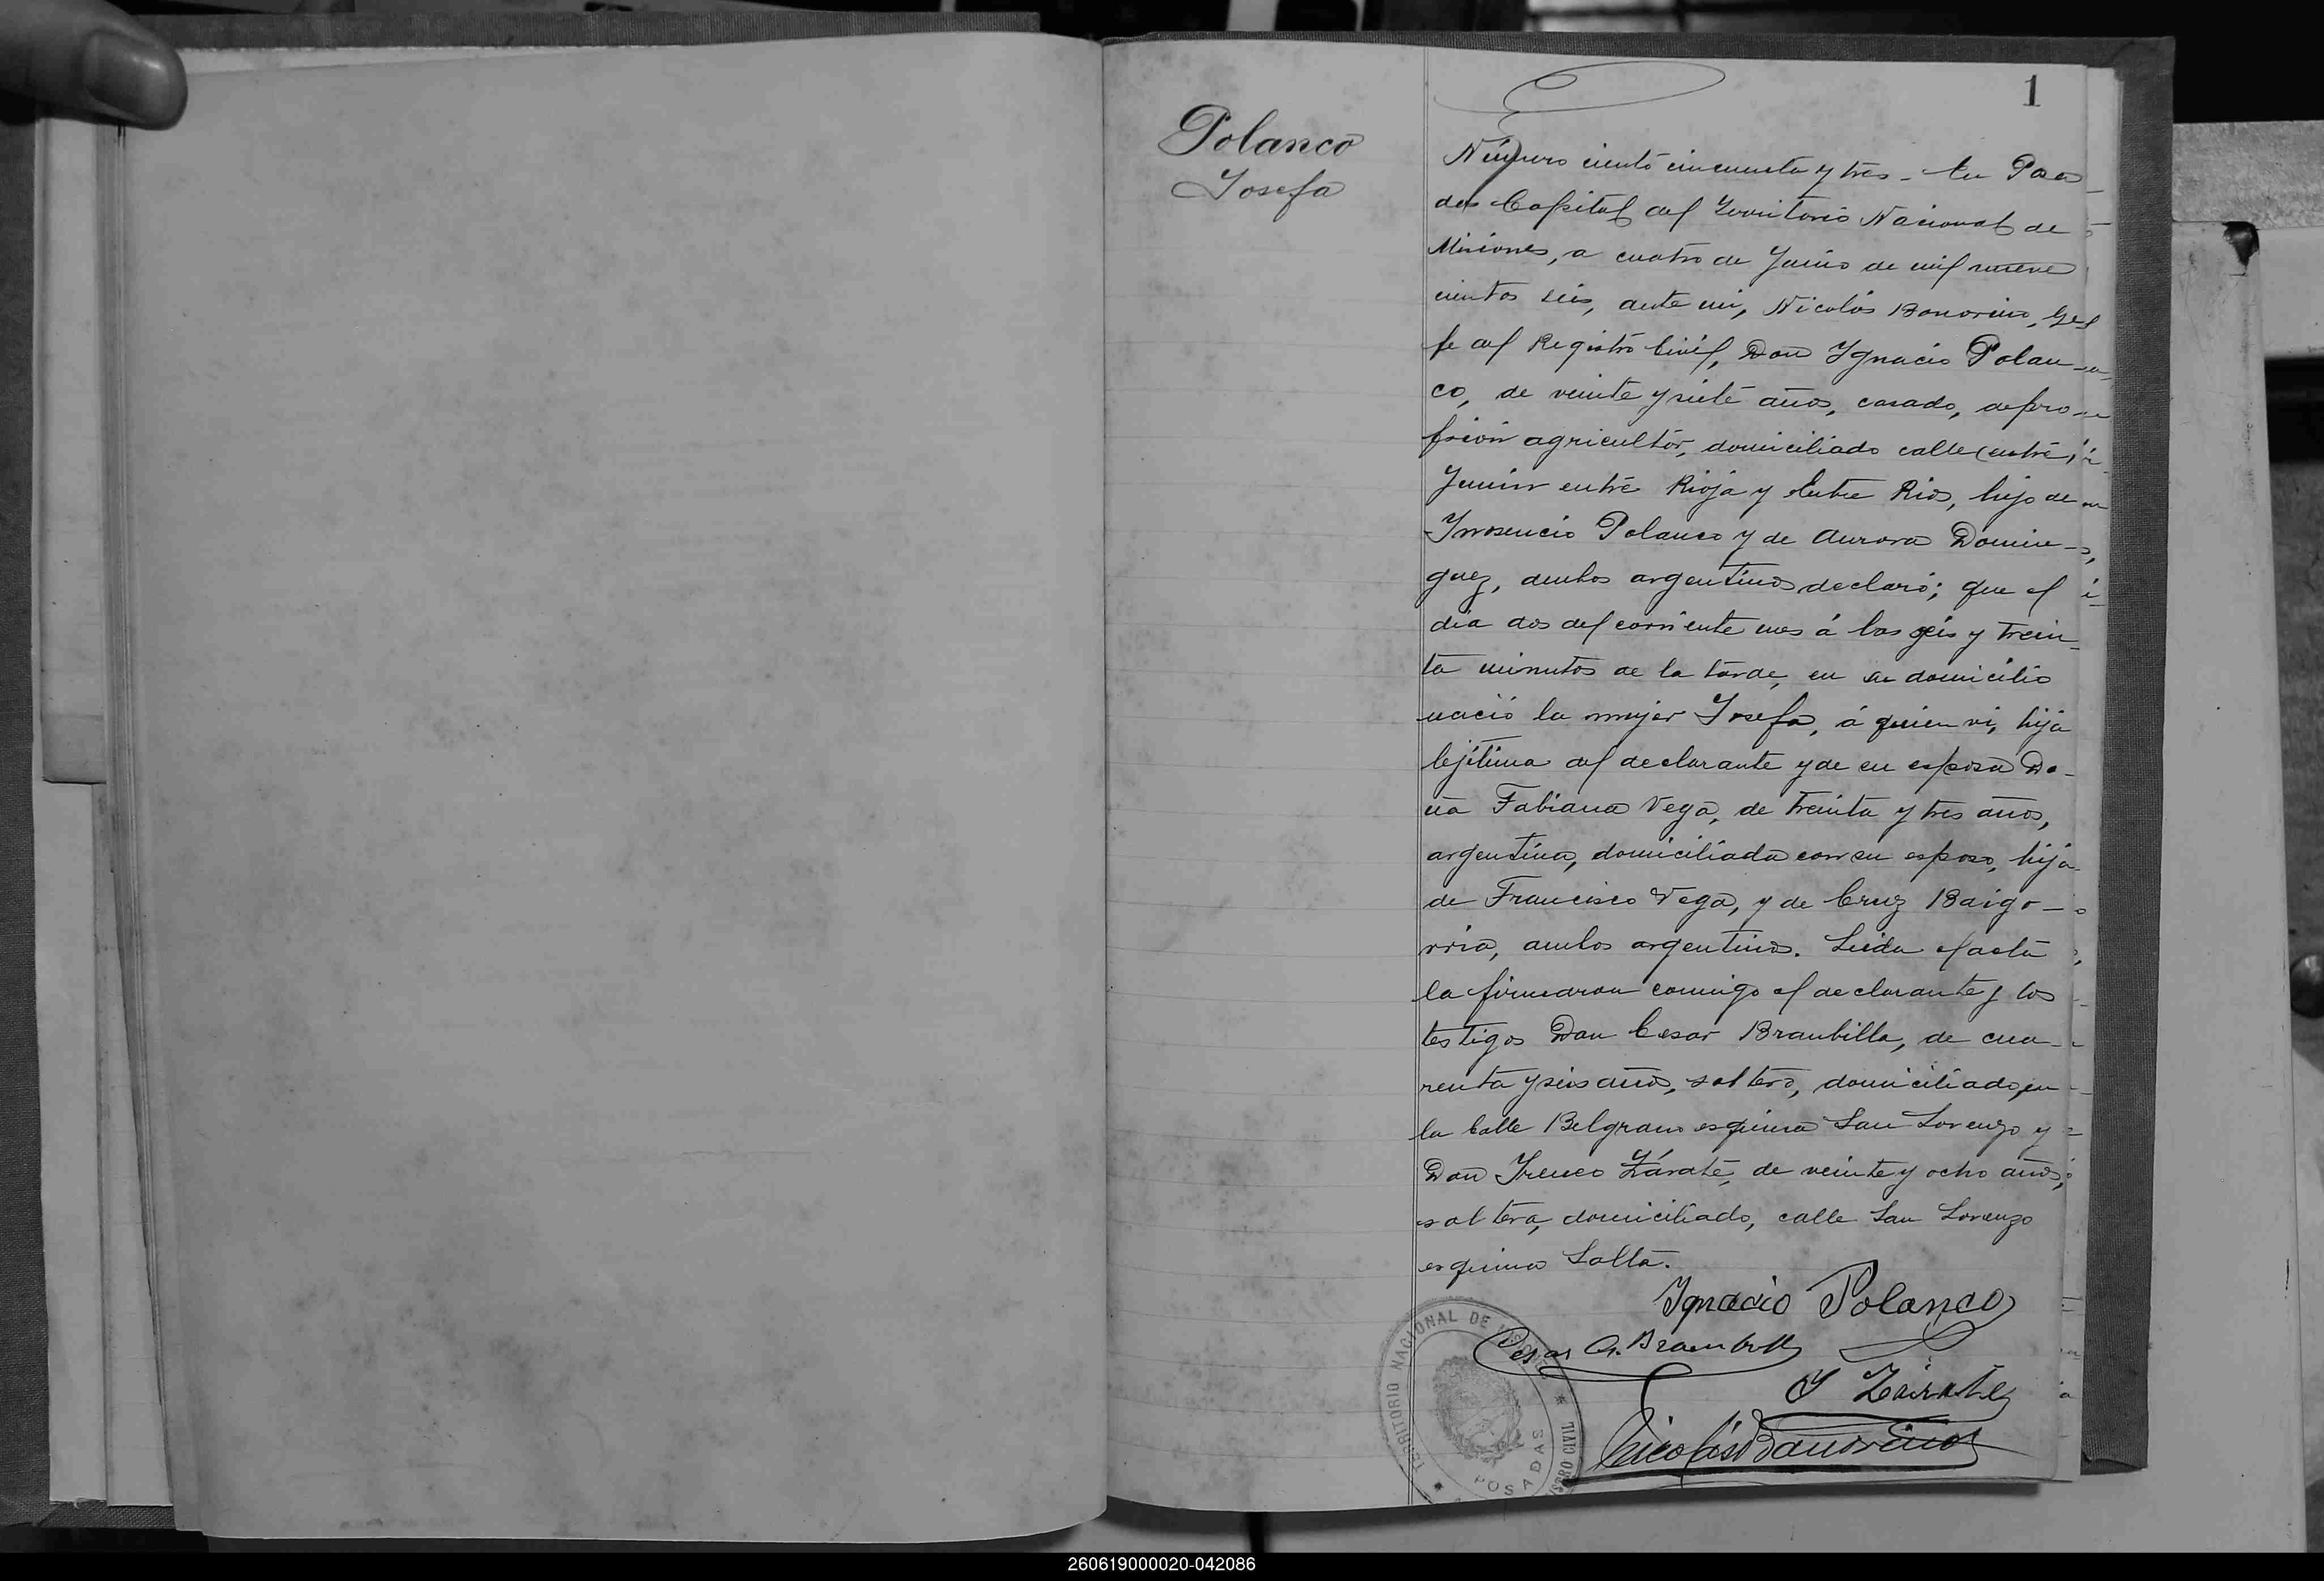 1
Polanco
Josefa
Número ciento cincuenta y tres - En Posa-
das Capital del Territorio Nacional de
Misiones, a cuatro de Junio de mil nueve
cientos seis, ante mi, Nicolás Bonorino, Gef
fe del Registro Civil, Don Ygnacio Polan-
co, de veinte y siete años, casado, de pro-
fesion agricultor, domiciliado calle (entre)
Junin entre Rioja y Entre Rios, hijo de
Ynosencio Polanco y de Aurora Domin-
guez, ambos argentinos declaró; que el
dia dos del corriente mes á las seis y trein
ta minutos de la tarde, en su domicilio
nació la mujer Josefa, á quien vi, hija
lejítima del declarante y de su esposa Do-
ña Fabiana Vega, de treinta y tres años,
argentina, domiciliada con su esposo, hija
de Francisco Vega, y de Cruz Baigo-
rria, ambos argentinos. Leida el acta
la firmaron comigo el declarante y los
testigos Don Cesar Brambilla, de cua-
renta y seis años, soltero, domiciliado, en
la Calle Belgrano esquina San Lorenzo y
Don Ireneo Zárate, de veinte y ocho años,
soltero, domiciliado, calle San Lorenzo
esquina Salta.
Ygnacio Polanco
Cesar A. Brambilla
Y Zárate
Nicolás Bonorino
TERRITORIO NACIONAL DE MISIONES
REGISTRO CIVIL
POSADAS
260619000020-042086